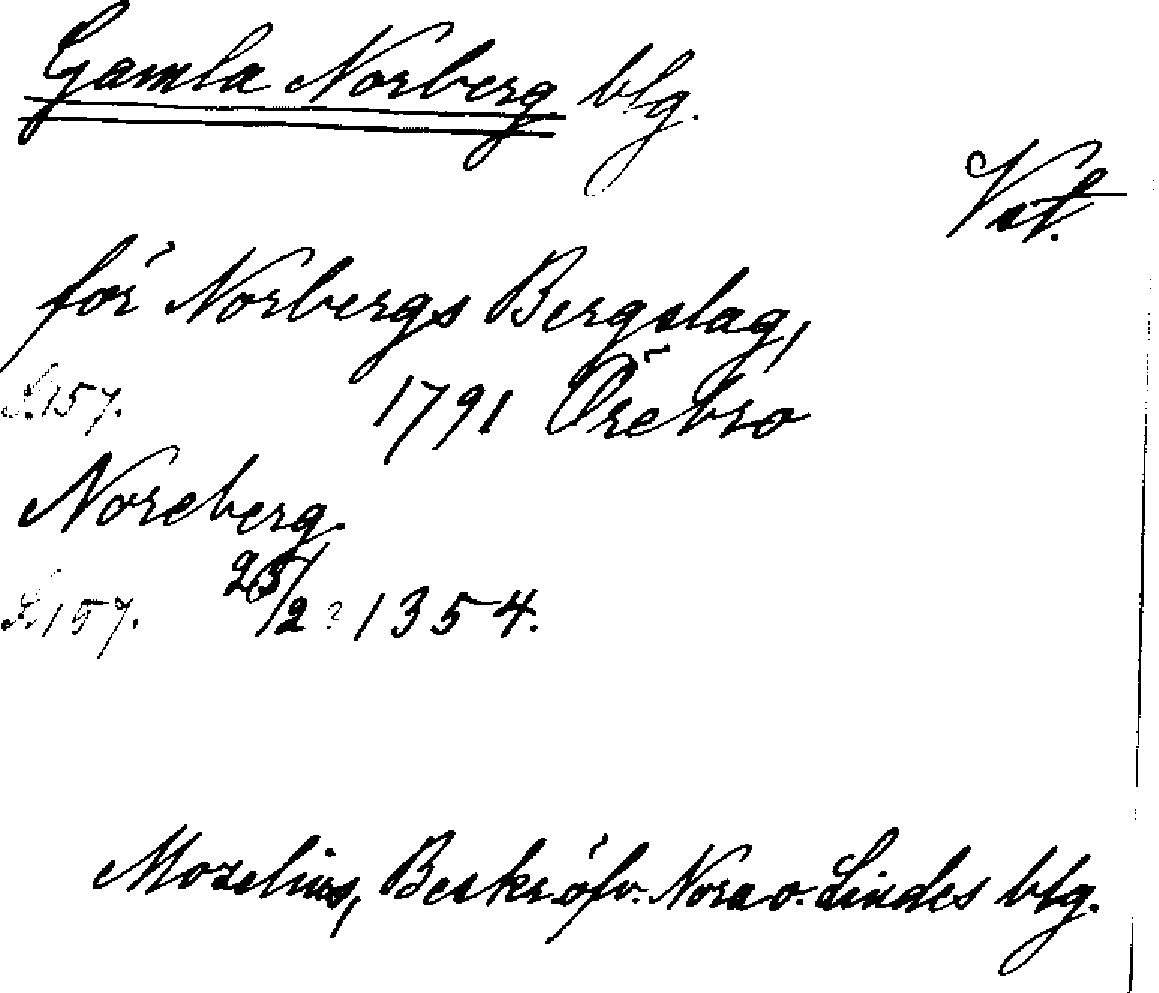 Gamla Norberg blg.
Vst.
för Norbergs Bergslag,
S. 157. 1791 Örebro
Noreberg.
S. 157. 25/2 1354.
Mozelius, Beskr. öfv. Nora o. Lindes blg.